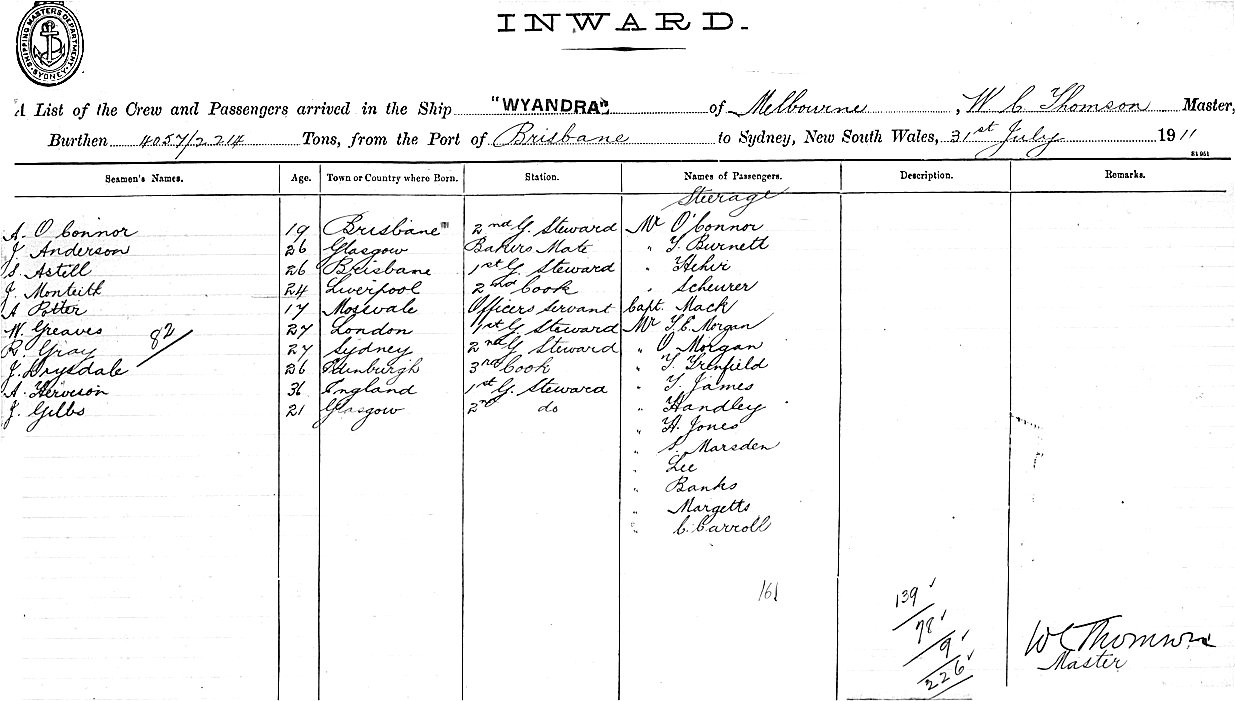 SHIPPING MASTERS DEPARTMENT SYDNEY
INWARD.
A List of the Crew and Passengers arrived in the Ship "WYANDRA" of Melbourne, W C Thomson Master,
Burthen 4057/2214 Tons, from the Port of Brisbane to Sydney, New South Wales, 31st July 1911
Seamen's Names. Age. Town or Country where Born. Station. Names of Passengers. Description. Remarks.
Steerage
A. O'Connor 19 Brisbane 2nd G. Steward Mr O'Connor
J. Anderson 26 Glasgow Bakers Mate " T. Burnett
S. Astill 26 Brisbane 1st G. Steward " Hehir
J. Monteith 24 Liverpool 2nd Cook " Scheurer
A Potter 17 Mosevale Officers Servant Capt. Mack
W. Greaves 27 London 1st G. Steward Mr T. E. Morgan
82
R. Gray 27 Sydney 2nd G Steward " O. Morgan
J. Drysdale 26 Edinburgh 3rd Cook " T. Grenfield
A. Herveson 36 England 1st G. Steward " T. James
J. Gibbs 21 Glasgow 2nd do " Handley
" H. Jones
" S. Marsden
" Lee
" Banks
" Margetts
" C. Carroll
161
139
78
9
226
W C Thomson
Master